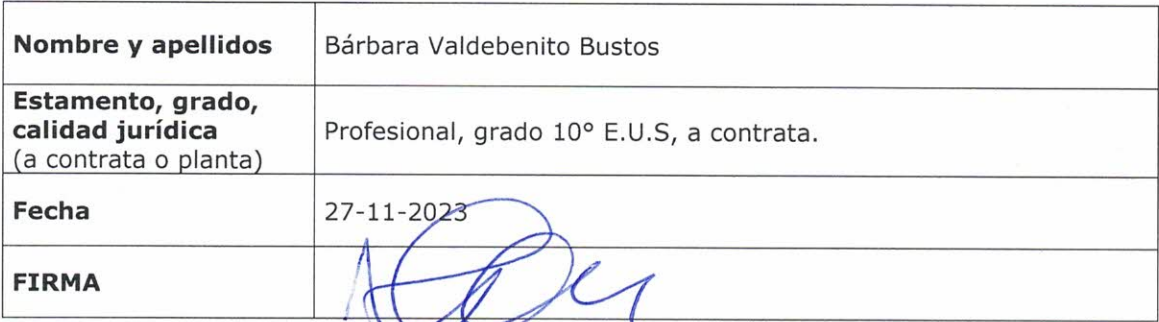 Nombre y apellidos
Bárbara Valdebenito Bustos
Estamento, grado,
calidad jurídica
(a contrata o planta)
Profesional, grado 10° E.U.S, a contrata.
Fecha
27-11-2023
FIRMA